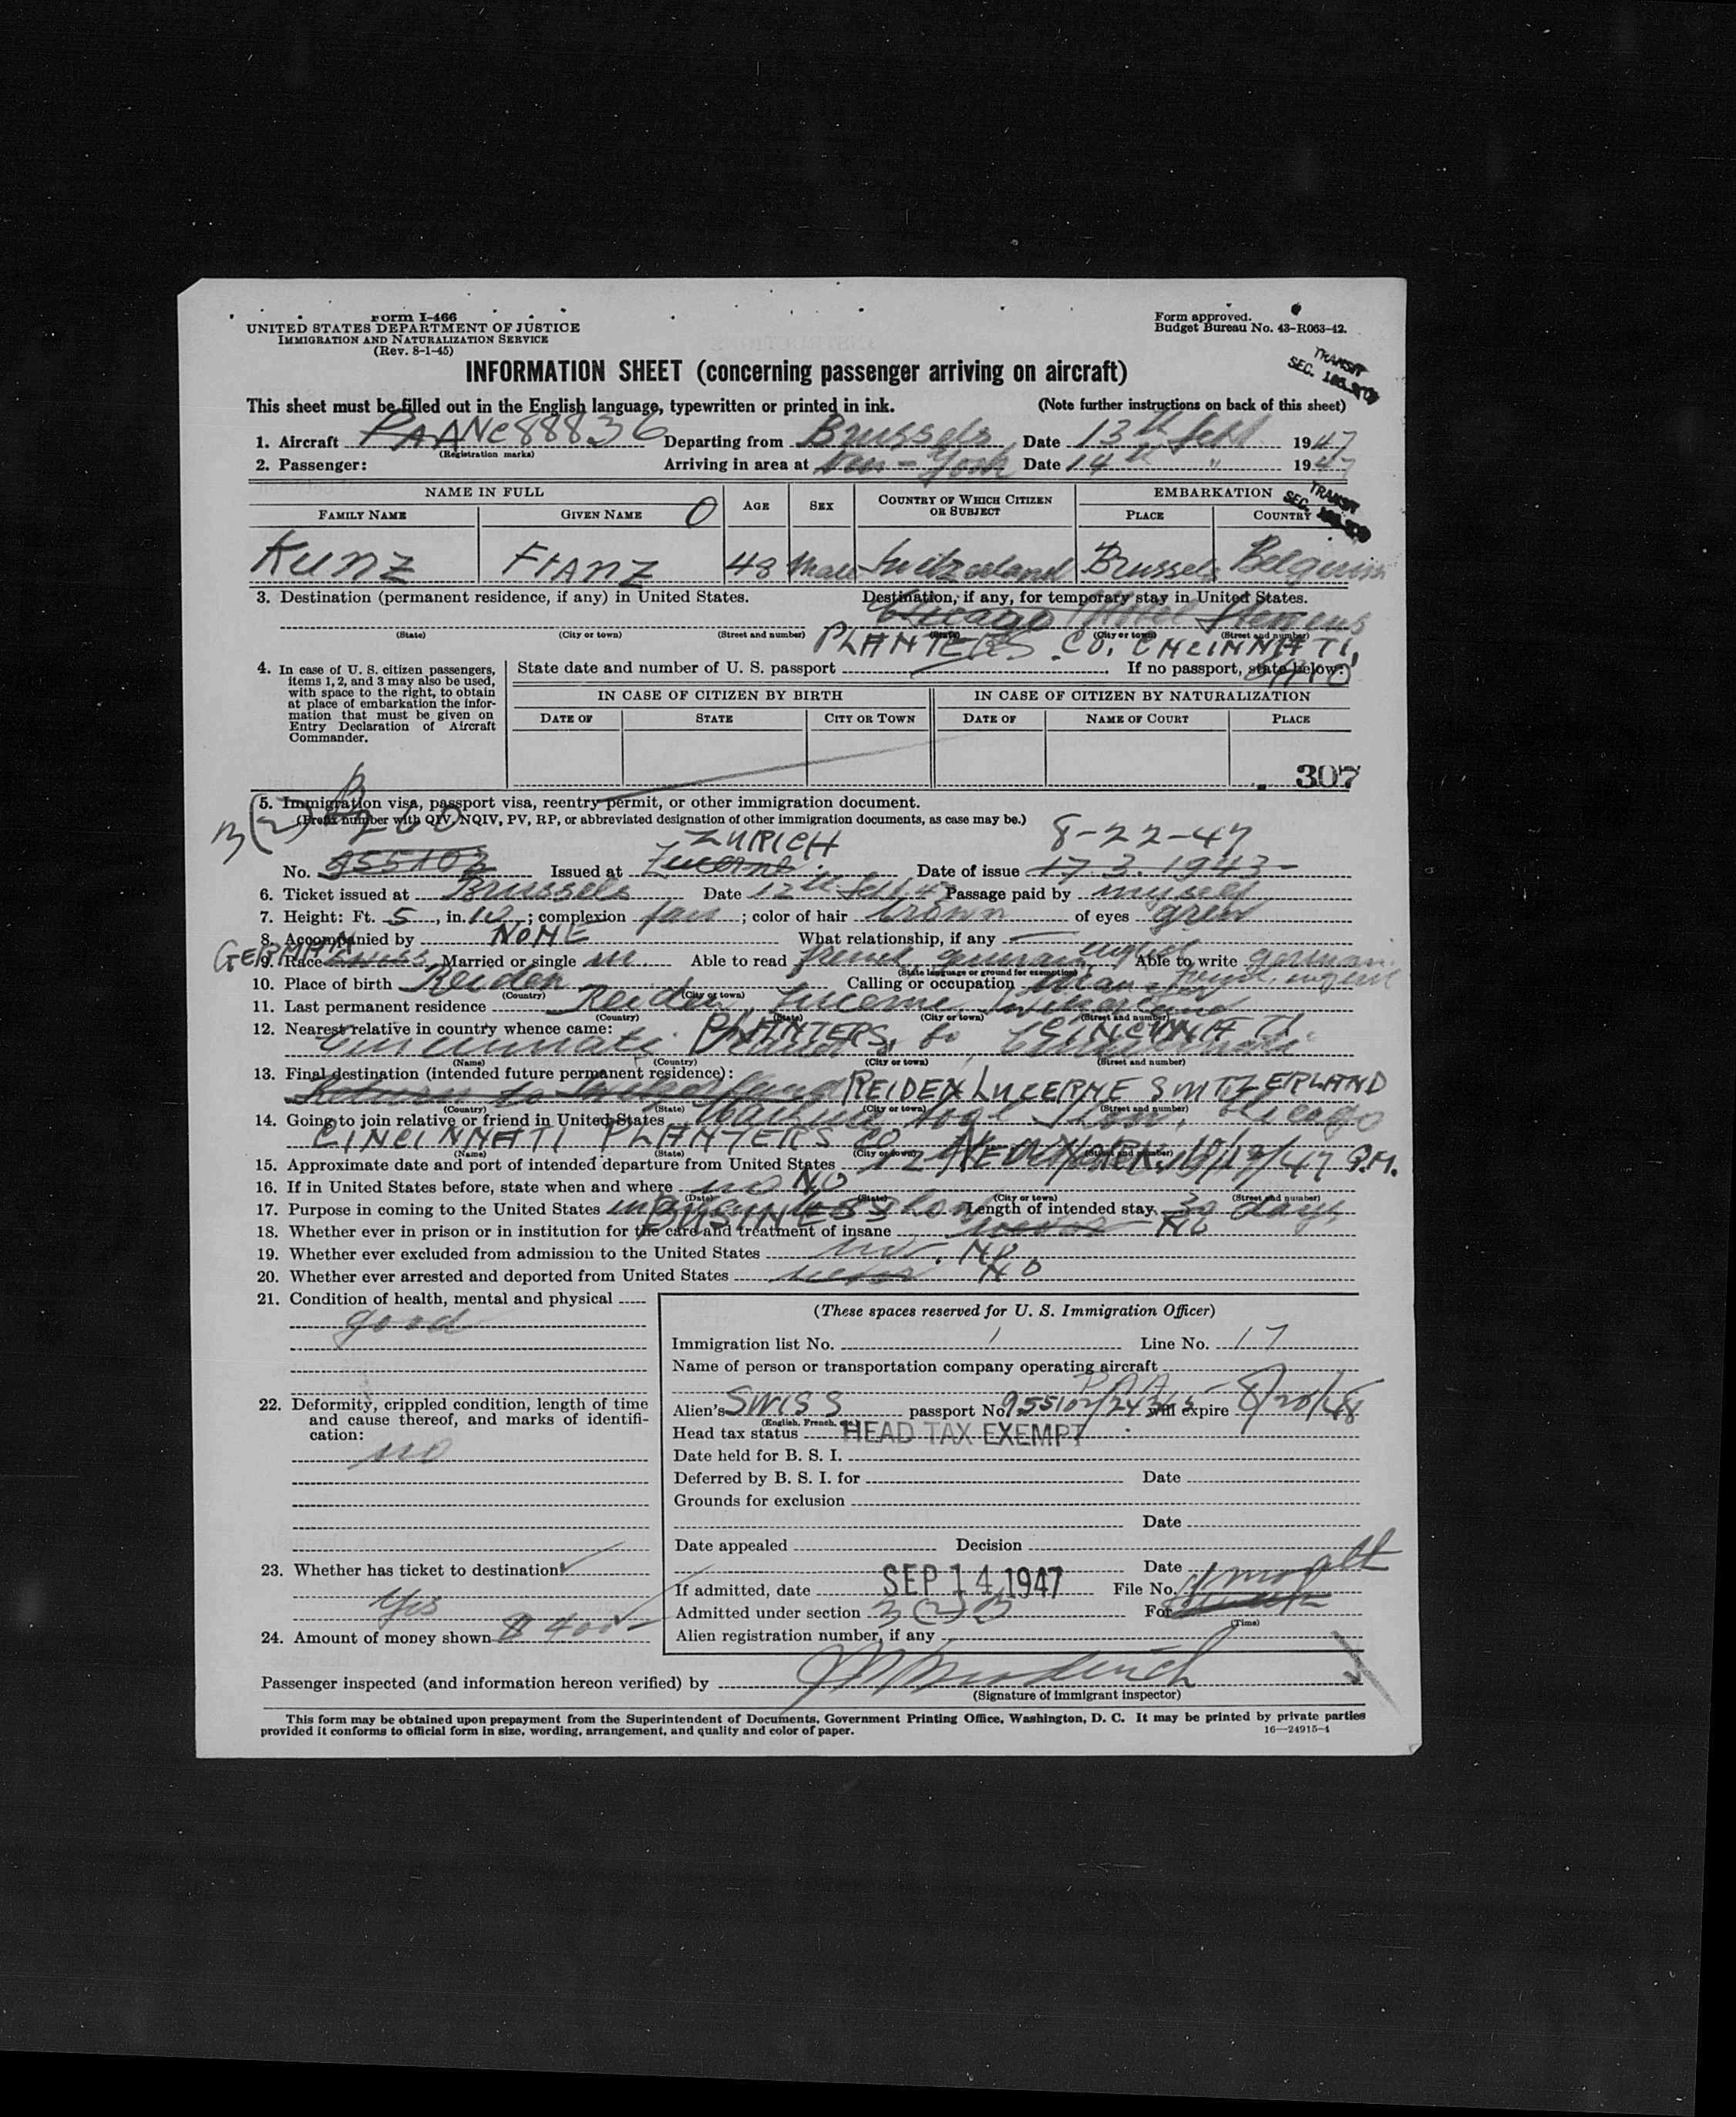 Form I-466
UNITED STATES DEPARTMENT OF JUSTICE
IMMIGRATION AND NATURALIZATION SERVICE
(Rev. 8-1-45)
Form approved.
Budget Bureau No. 43-R063-42.
INFORMATION SHEET (concerning passenger arriving on aircraft)
TRANSIT
SEC.
This sheet must be filled out in the English language, typewritten or printed in ink. (Note further instructions on back of this sheet)
1. Aircraft PAA NC88836 Departing from Brussels Date 13th 1947
(Registration marks)
2. Passenger: Arriving in area at New-York Date 14th " 1947
NAME IN FULL AGE SEX COUNTRY OF WHICH CITIZEN OR SUBJECT EMBARKATION
TRANSIT
SEC.
FAMILY NAME GIVEN NAME O PLACE COUNTRY
Kunz Franz 48 Male Switzerland Brussels Belguim
3. Destination (permanent residence, if any) in United States. Destination, if any, for temporary stay in United States.
Chicago Hotel Stevens
(State) (City or town) (Street and number) (State) (City or town) (Street and number)
PLANTERS CO. CNCINNATI, OHIO
4. In case of U. S. citizen passengers, items 1, 2, and 3 may also be used, with space to the right, to obtain at place of embarkation the information that must be given on Entry Declaration of Aircraft Commander.
State date and number of U. S. passport If no passport, state below:
IN CASE OF CITIZEN BY BIRTH IN CASE OF CITIZEN BY NATURALIZATION
DATE OF STATE CITY OR TOWN DATE OF NAME OF COURT PLACE
307
5. Immigration visa, passport visa, reentry permit, or other immigration document.
(Prefix number with QIV, NQIV, PV, RP, or abbreviated designation of other immigration documents, as case may be.)
3(2) B
ZURICH 8-22-47
No. 955102 Issued at Lucerne Date of issue 17 3. 1943-
6. Ticket issued at Brussels Date 12th 47 Passage paid by myself
7. Height: Ft. 5, in. 10; complexion fair; color of hair brown of eyes grew
8. Accompanied by NONE What relationship, if any
GERMAN
9. Race Swiss Married or single m. Able to read german, english Able to write german
(State language or ground for exemption)
10. Place of birth Reiden Calling or occupation
(Country) (City or town)
11. Last permanent residence Reiden Lucerne Switzerland
(Country) (State) (City or town) (Street and number)
12. Nearest relative in country whence came: PLANTERS, CINCINNATI.
Cincinnati
(Name) (Country) (City or town) (Street and number)
13. Final destination (intended future permanent residence):
Return to Switzerland REIDEN LUCERNE SWITZERLAND
(Country) (State) (City or town) (Street and number)
14. Going to join relative or friend in United States Chicago
CINCINNATI PLANTERS CO
(Name) (State) (City or town) (Street and number)
15. Approximate date and port of intended departure from United States NEW YORK, 10/12/47 P.M.
16. If in United States before, state when and where no NO
(Date) (State) (City or town) (Street and number)
17. Purpose in coming to the United States BUSINESS Length of intended stay 30 days
18. Whether ever in prison or in institution for the care and treatment of insane never NO
19. Whether ever excluded from admission to the United States NO
20. Whether ever arrested and deported from United States never NO
21. Condition of health, mental and physical
good
22. Deformity, crippled condition, length of time and cause thereof, and marks of identification:
no
23. Whether has ticket to destination
Yes
24. Amount of money shown $ 400.-
(These spaces reserved for U. S. Immigration Officer)
Immigration list No. 1 Line No. 17
Name of person or transportation company operating aircraft
PAA
Alien's SWISS passport No. 955102/24365 will expire 8/20/48
(English, French, etc.)
Head tax status HEAD TAX EXEMPT
Date held for B. S. I.
Deferred by B. S. I. for Date
Grounds for exclusion
Date
Date appealed Decision
Date
If admitted, date SEP 14 1947 File No.
Admitted under section 3(2) B For
(Time)
Alien registration number, if any
Passenger inspected (and information hereon verified) by
(Signature of immigrant inspector)
This form may be obtained upon prepayment from the Superintendent of Documents, Government Printing Office, Washington, D. C. It may be printed by private parties
provided it conforms to official form in size, wording, arrangement, and quality and color of paper. 16—24915-1